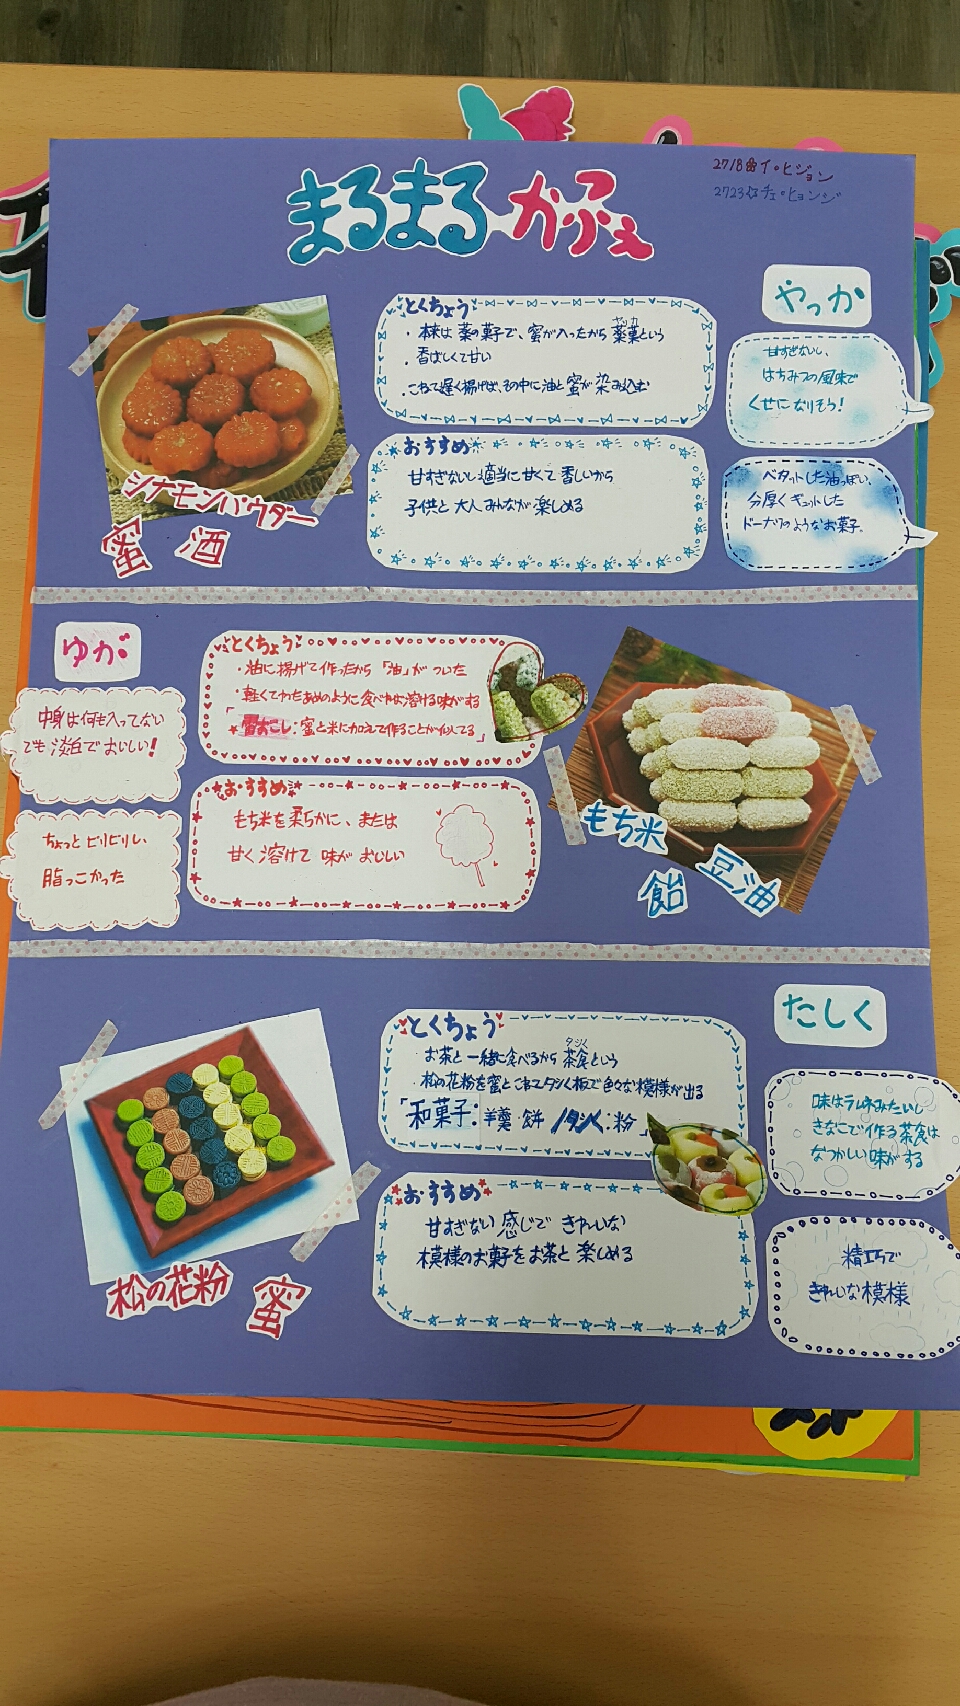 2718 イ・ヒジョン
2723 チェ・ヒョンジ
まるまるかふぇ
やっか
とくちょう
・本来は薬の菓子で、蜜が入ったから薬菓という
ヤッカ
・香ばしくて甘い
・こねて遅く揚げば、その中に油と蜜が染み込む
おすすめ
甘すぎないし適当に甘くて香しいから
子供と大人みんなが楽しめる
甘すぎないし、
はちみつの風味で
くせになりそう！
ベタットした油っぽい、
分厚くギュットした
ドーナツのようなお菓子。
シナモンパウダー
蜜 酒
ゆが
とくちょう
・油に揚げて作ったから「油」がついた
・軽くてわたあめのように食べやすく溶ける味がする
「雷おこし：蜜と米に加えて作ることが似てる」
おすすめ
もち米を柔らかに、または
甘く溶けて味がおいしい
中身は何も入ってない
でも淡白でおいしい！
ちょっとピリピリしい
脂っこかった
もち米
飴 豆油
たしく
とくちょう
お茶と一緒に食べるから茶食という
タシく
・松の花粉を蜜とこねてタシく板で色々な模様が出る
「和菓子：羊羹・餅 / タシく：粉」
おすすめ
甘すぎない感じできれいな
模様のお菓子をお茶と楽しめる
味はラムネみたいし
きなこで作る茶食は
なつかしい味がする
精巧で
きれいな模様
松の花粉 蜜